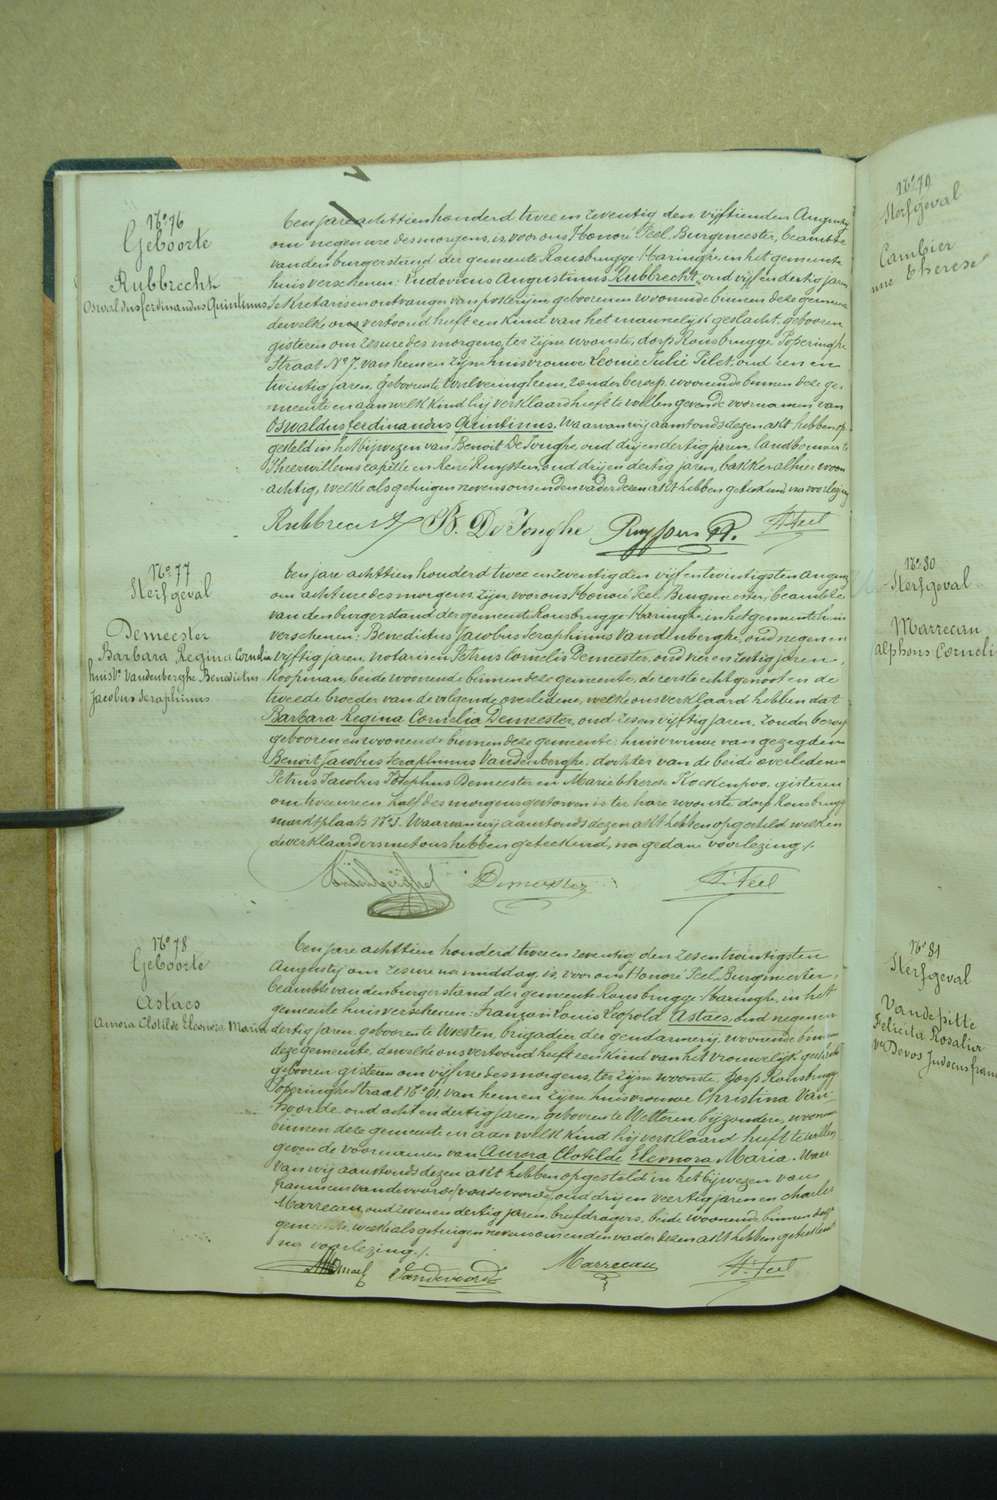 N° 76
Geboorte
Rubbrecht
Oswaldus ferdinandus Quintinus
Ten jare achttien honderd twee en zeventig den vijftienden Augusty
om negen ure des morgens, is voor ons Honoré Feel, Burgmeester, beambte
van den burgerstand der gemeente Rousbrugge Haringhe, in het gemeente
huis verschenen: Ludovicus Augustinus Rubbrecht, oud vijf en dertig jaren
Sekretaris en ontvanger van posterijen geboren en woonende binnen deze gemeente
dewelke ons vertoond heeft een kind van het mannelijk geslacht, geboren
gisteren om zes ure des morgens, ter zijne woonste, dorp Rousbrugge Poperinghe
Straat N° 7. van hem en zijne huisvrouwe Leonie Julie Pilet, oud een en
twintig jaren, geboren te Wulveringhem, zonder beroep, woonende binnen deze ge-
meente en aan welk kind hij verklaard heeft te willen geven de voornamen van
Oswaldus ferdinandus Quintinus. Waarvan wij aanstonds dezen akt hebben op-
gesteld in het bijwezen van Benoit De Jonghe, oud drij en dertig jaren, landbouwer te
S'heerwillemscapelle en René Ruyssen, oud drij en dertig jaren, bakker alhier woon-
achtig, welke als getuigen nevens ons en den vader dezen akt hebben geteekend na voorlezing
Rubbrecht B. De Jonghe Ruyssen R. H. Feel
N° 77
Sterfgeval
Demeester
Barbara Regina Cornelia
huisve Vandenberghe Benedictus
Jacobus Seraphinus
Ten jare achttien honderd twee en zeventig den vijf en twintigsten Augusty
om acht ure des morgens, zijn voor ons Honoré Feel, Burgmeester, beambte
van den burgerstand der gemeente Rousbrugge Haringhe, in het gemeentehuis
verschenen: Benedictus Jacobus Seraphinus Vandenberghe, oud negen en
vijftig jaren, notaris en Petrus Cornelis Demeester, oud vier en zestig jaren,
koopman, beide woonende binnen deze gemeente, de eerste echtgenoot en de
tweede broeder van de volgende overledene, welke ons verklaard hebben dat
Barbara Regina Cornelia Demeester, oud zes en vijftig jaren, zonder beroep
geboren en woonende binnen deze gemeente: huisvrouwe van gezegden
Benoit Jacobus Seraphinus Vandenberghe, dochter van de beide overledenen
Petrus Jacobus Josephus Demeester en Marie therese Kockenpoo, gisteren
om twee ure en half des morgens gestorven is ter hare wooste dorp Rousbrugge
marktplaats N° 5. Waarvan wij aanstonds dezen akt hebben opgesteld welken
de verklaarders met ons hebben geteekend, na gedane voorlezing ./.
Vandenberghe Demeester H. Feel
N° 78
Geboorte
Astaes
Aurora Clotilde Eleonora Maria
Ten jare achttien honderd twee en zeventig den zes en twintigsten
Augusty om zes ure na middag, is, voor ons Honoré Feel, Burgmeester,
beambte van den burgerstand der gemeente Rousbrugge Haringhe, in het
gemeente huis verschenen: Franz. Louis Leopold Astaes, oud negen en
dertig jaren, geboren te Westen, brigadier der gendarmerij, woonende binnen
deze gemeente, dewelke ons vertoond heeft een kind van het vrouwelijk geslacht
geboren gisteren om vijf ure des morgens, ter zijne wooste, dorp Rousbrugge
Poperinghestraat N° 91, van hem en zijne huisvrouwe Christina Van
Hoorde, oud acht en dertig jaren, geboren te Wetteren, bijzondere, woonende
binnen deze gemeente en aan welk kind hij verklaard heeft te willen
geven de voornamen van Aurora Clotilde Eleonora Maria. Waar
van wij aanstonds dezen akt hebben opgesteld in het bijwezen van
Vandevoorde, oud drij en veertig jaren en Charles
Marrecau, oud zeven en dertig jaren, briefdragers, beide woonende binnen deze
gemeente, welke als getuigen nevens ons en den vader dezen akt hebben geteekend
na voorlezing ./.
Vandevoorde Marrecau H. Feel
N° 79
Sterfgeval
Cambier
therese
N° 80
Sterfgeval
Marrecau
Alphons Corneli
N° 81
Sterfgeval
Vandepitte
Felicita Rosalia
ve Devos Judocus fran